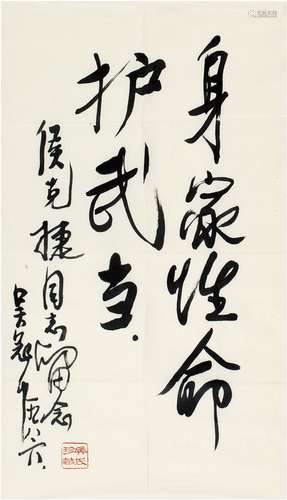 身家性命
护武当.
侯克捷同志留念